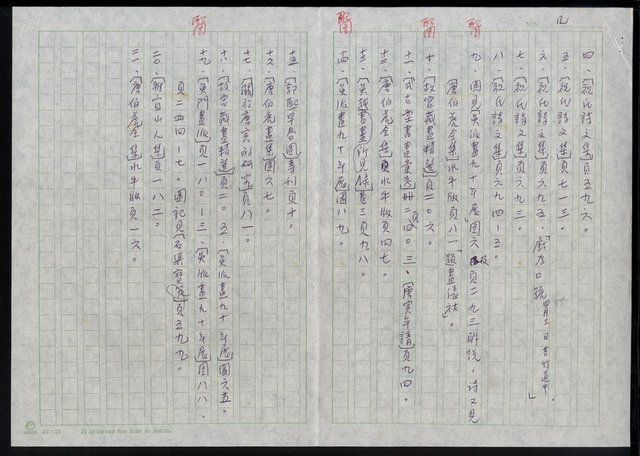 NO. 12
四、〔祝氏詩文集〕頁五九六。
五、〔祝氏詩文集〕頁七一三。
六、〔祝氏詩文集〕頁六九五。「戲方口號四月三日苦竹道中」
七、〔祝氏詩文集〕頁六九三。
八、〔祝氏詩文集〕頁六九四-五。
九、圖見〔吳派畫九十年展〕圖六及頁二九三解說,詩又見
〔唐伯虎全集〕水牛版頁八一「題畫張祜」。
十、〔故宮藏畫精選〕頁二〇六。
十一、〔式古堂書畫彙考〕冊四頁二四〇三、〔唐寅年譜〕頁九四。
十二、〔唐伯虎全集〕水牛版頁四七。
十三、〔吳越所見書畫錄〕卷三頁九八。
十四、〔吳派畫九十年展〕圖八九。
十五、〔郭熙早春圖〕專刊頁十。
十六、〔唐伯虎畫集〕圖六七。
十七、〔關於唐寅的研究〕頁八一。
十八、〔故宮藏畫精選〕頁二〇五、〔吳派畫九十年展〕圖六五。
十九、〔吳門畫派〕頁一八〇-三、〔吳派畫九十年展〕圖八八、
頁二四四-七。圖記見〔石渠寶笈〕頁五九九。
二〇、〔雅宜山人集〕頁一八二。
二一、〔唐伯虎全集〕水牛版頁一六。
24×25
It is never too late to learn.